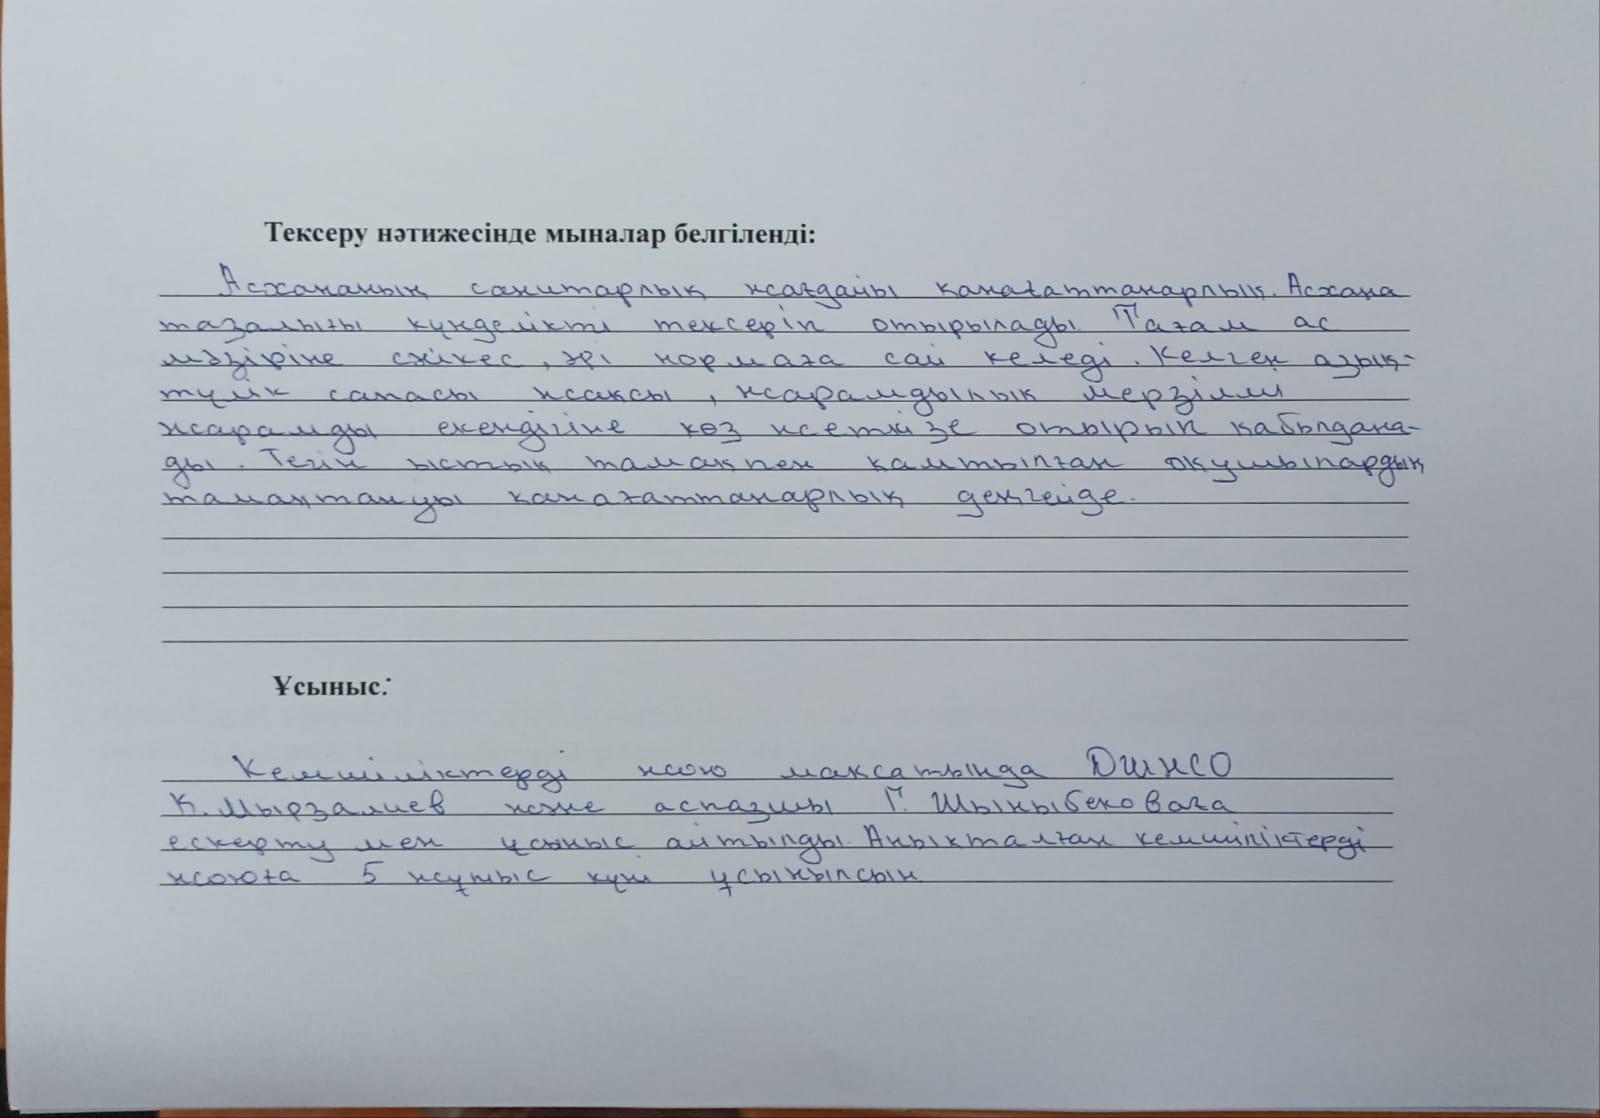 Тексеру нәтижесінде мыналар белгіленді:
Асхананың санитарлық жағдайы қанағаттанарлық. Асхана
тазалығы күнделікті тексеріп отырылады. Тағам ас
мәзіріне сәйкес, әрі нормаға сай келеді. Келген азық-
түлік сапасы жақсы, жарамдылық мерзімі
жарамды екендігіне көз жеткізе отырып қабылдана-
ды. Тегін ыстық тамақпен қамтылған оқушылардың
тамақтануы қанағаттанарлық деңгейде.
Ұсыныс:
Кемшіліктерді жою мақсатында ДШЖО
К. Мырзалиев және аспазшы Г. Шыныбековаға
ескерту мен ұсыныс айтылды. Анықталған кемшіліктерді
жоюға 5 жұмыс күні ұсынылсын